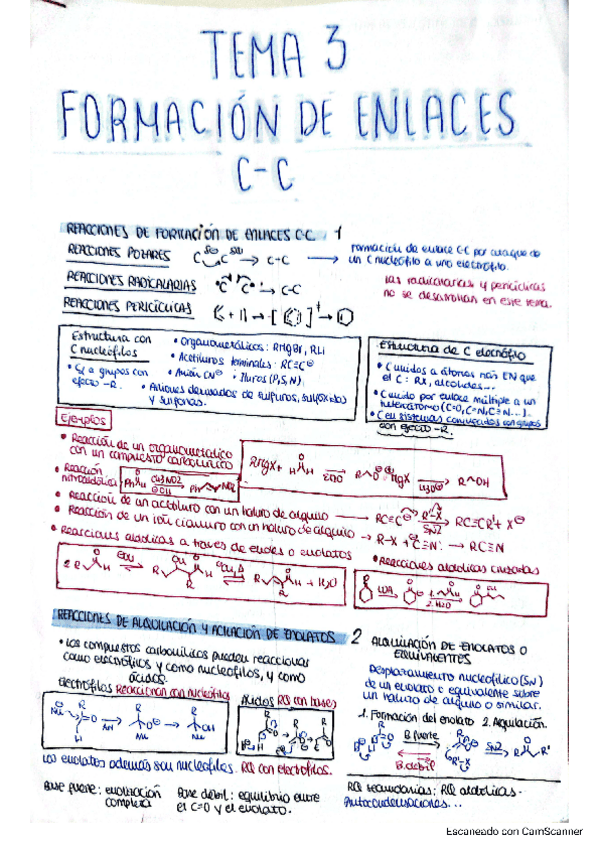 TEMA 3
FORMACIÓN DE ENLACES
C-C
REACCIONES DE FORMACIÓN DE ENLACES C-C. 1
REACCIONES POLARES C C → C-C → Formación de enlace C-C por ataque de
un C nucleófilo a uno electrófilo.
REACCIONES RADICALARIAS C C → C-C
Las radicalarias y pericíclicas
no se desarrollan en este tema.
REACCIONES PERICÍCLICAS
Estructura con
C nucleófilos
• Organometálicos: RMgBr, RLi
• Acetiluros terminales: RC≡C⊖
• Anión CN⊖ • Iluros (P,S,N).
• Cα a grupos con
efecto -R.
• Aniones derivados de sulfuros, sulfóxidos
y sulfonas.
Estructura de C electrófilo
• C unidos a átomos más EN que
el C: RX, alcoholes...
• C unido por enlace múltiple a un
heteroátomo (C=O, C=N, C≡N...).
• C en sistemas conjugados con grupos
con efecto -R.
Ejemplos
• Reacción de un organometálico
con un compuesto carbonílico
RMgX + H H → Et2O R O⊖ ⊕MgX → H3O⊕ R OH
• Reacción
nitroaldólica
Ph H CH3NO2 ⊖OH Ph NO2
• Reacción de un acetiluro con un haluro de alquilo → RC≡C⊖ R'-X SN2 RC≡CR' + X⊖
• Reacción de un ión cianuro con un haluro de alquilo → R-X + C≡N: → RC≡N
• Reacciones aldólicas a través de enoles o enolatos
• Reacciones aldólicas cruzadas
2 R H ⊖OH R H ⊖OH, Δ R H + H2O
LDA 1. 2. H2O
REACCIONES DE ALQUILACIÓN Y ACILACIÓN DE ENOLATOS
• Los compuestos carbonílicos pueden reaccionar
como electrófilos y como nucleófilos, y como
ácidos.
Electrófilos Reaccionan con nucleófilos
Ácidos RQ con bases
Los enolatos además son nucleófilos. RQ con electrófilos.
Base fuerte: enolización
completa
Base débil: equilibrio entre
el C=O y el enolato.
2 ALQUILACIÓN DE ENOLATOS O
EQUIVALENTES
Desplazamiento nucleofílico (SN)
de un enolato o equivalente sobre
un haluro de alquilo o similar.
1. Formación del enolato 2. Alquilación.
B. fuerte
B. débil
SN2
R'-X
RQ secundarias: RQ aldólicas.
Autocondensaciones...
Escaneado con CamScanner